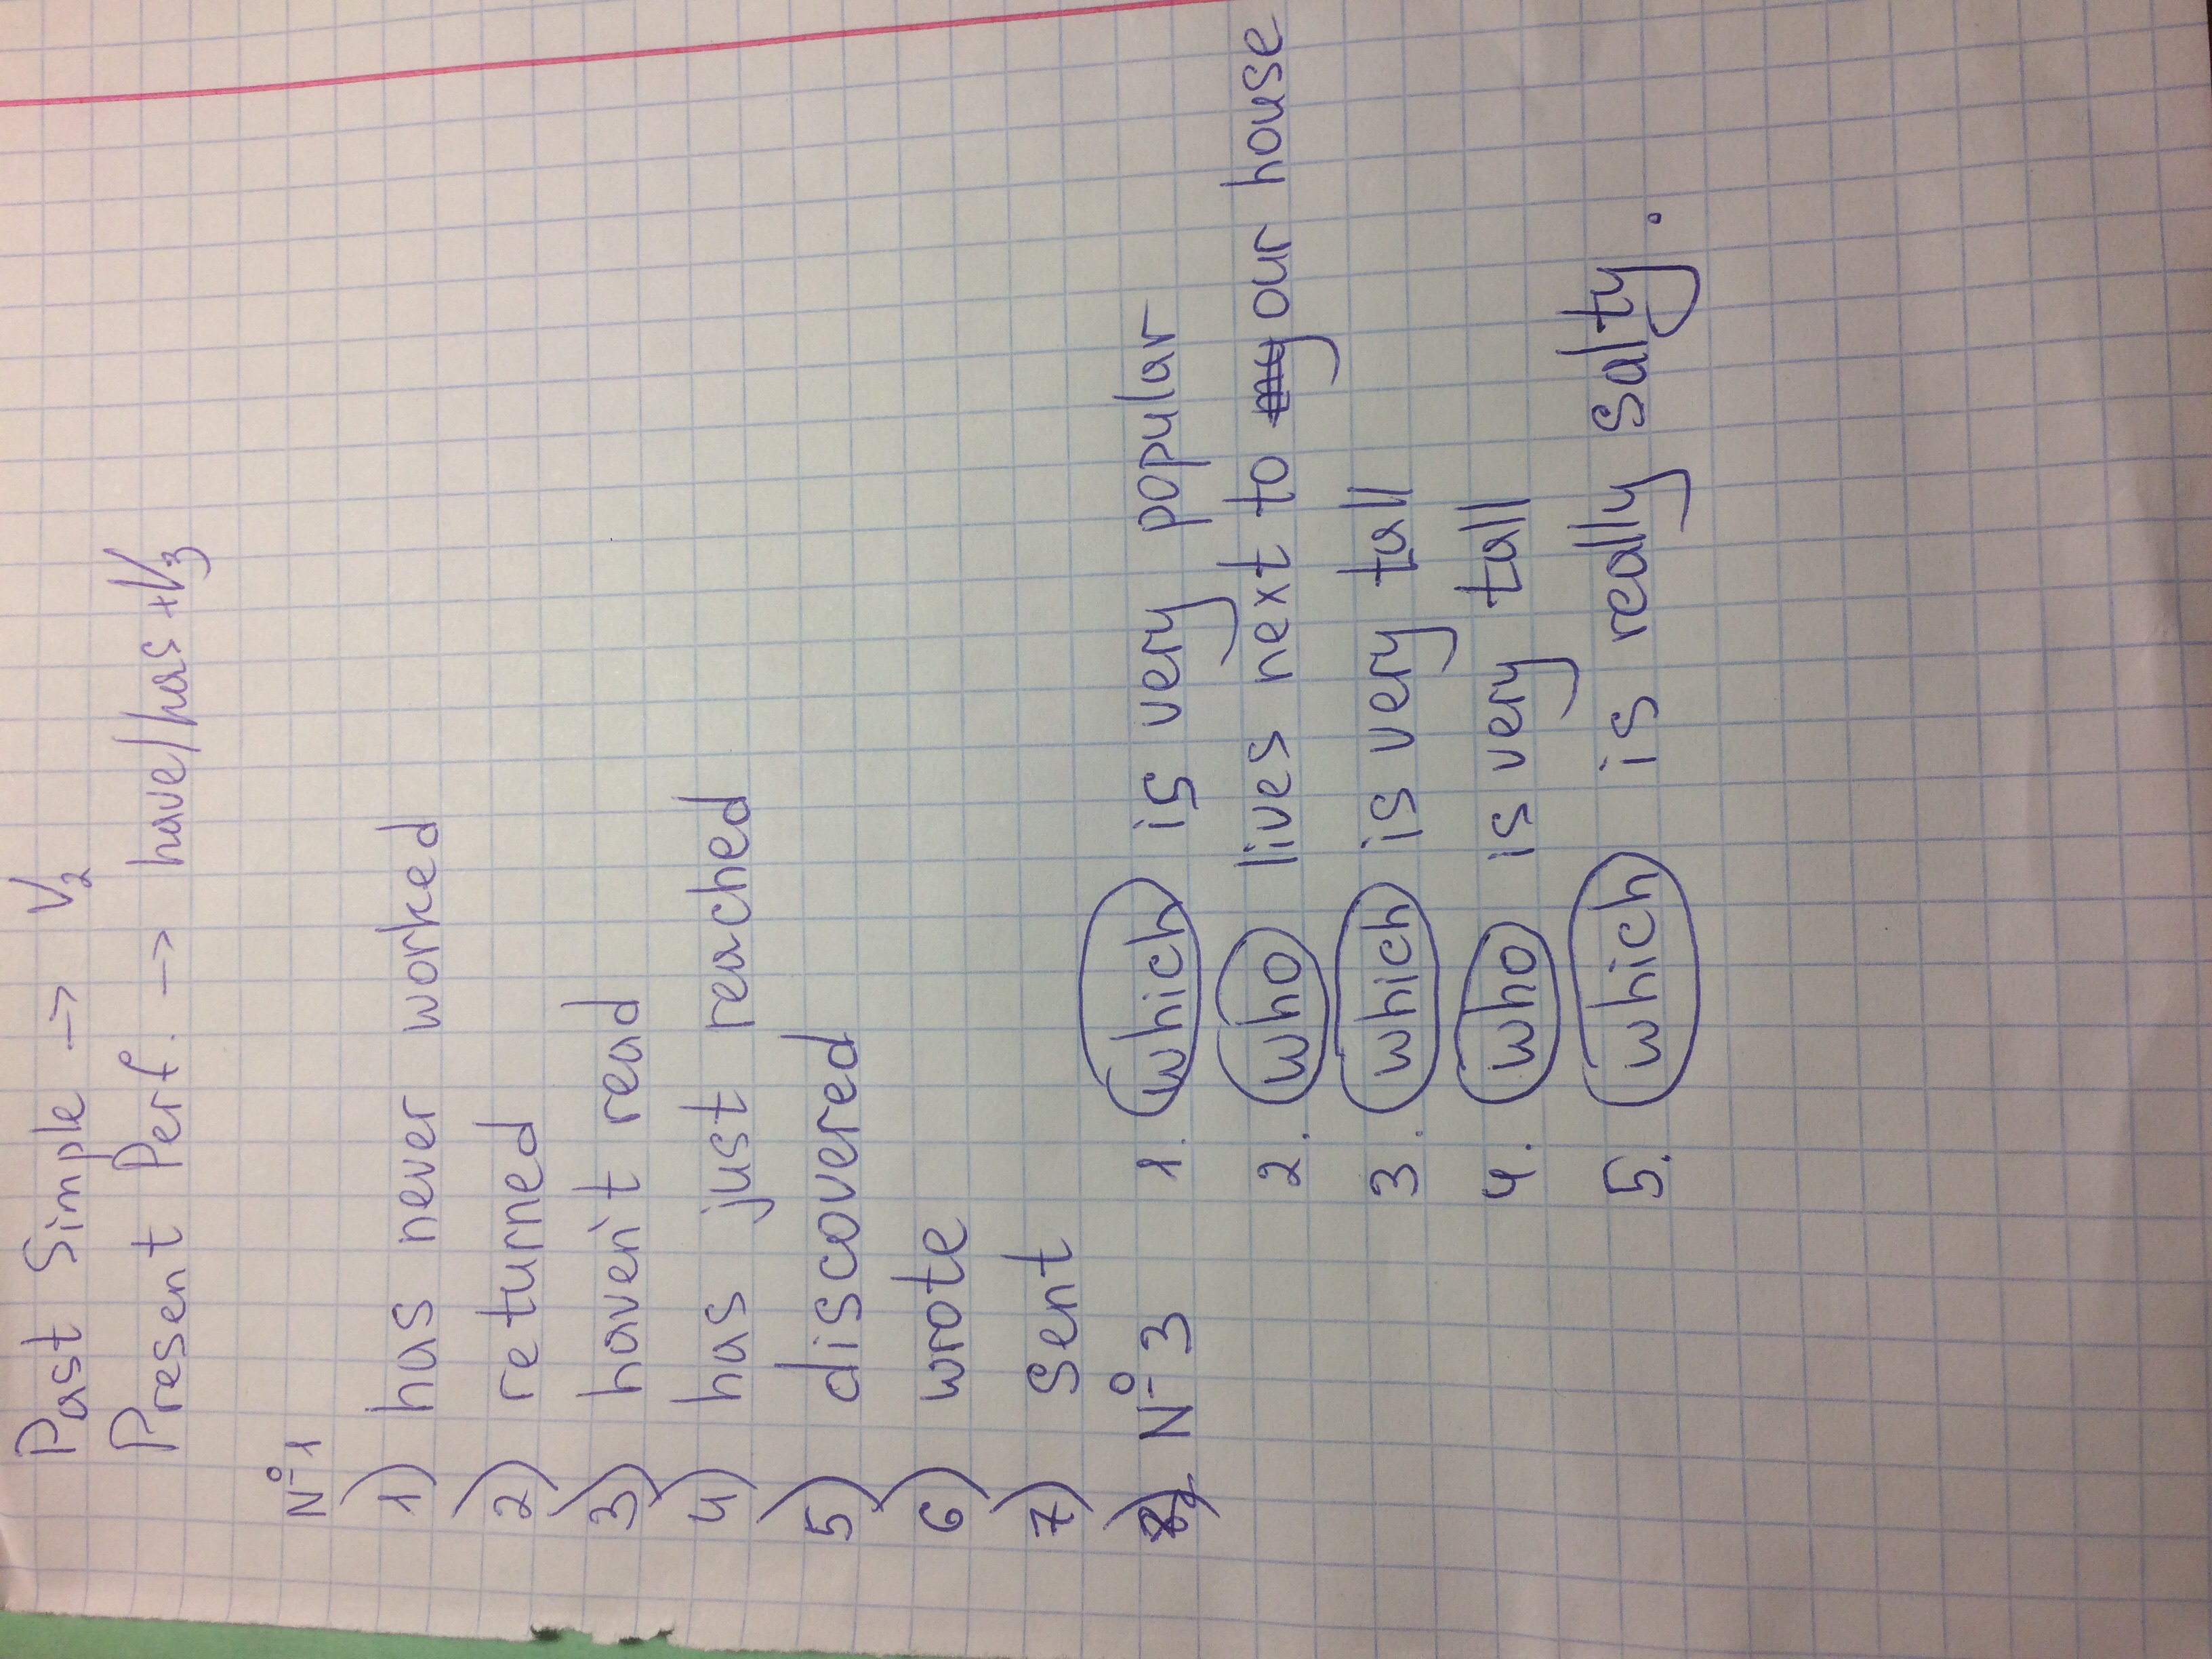 Past Simple -> V2
Present Perf. -> have/has +V3
№1
1) has never worked
2) returned
3) haven't read
4) has just reached
5) discovered
6) wrote
7) sent
№3 1. which is very popular
2. who lives next to our house
3. which is very tall
4. who is very tall
5. which is really salty.